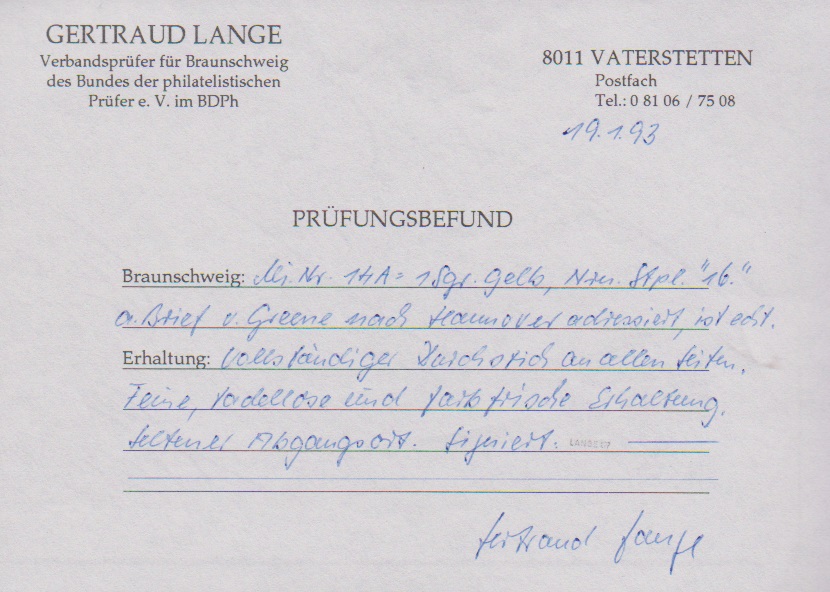 GERTRAUD LANGE
Verbandsprüfer für Braunschweig
des Bundes der philatelistischen
Prüfer e. V. im BDPh
8011 VATERSTETTEN
Postfach
Tel.: 0 81 06 / 75 08
19.1.93
PRÜFUNGSBEFUND
Braunschweig: Mi. Nr. 14A = 1 Sgr. gelb, Num. Stpl. "16."
a. Brief v. Greene nach Hannover adressiert, ist echt.
Erhaltung: Vollständiger Durchstich an allen Seiten.
Feine, tadellose und farbfrische Erhaltung.
Seltener Abgangsort. Signiert: LANGE
Gertraud Lange